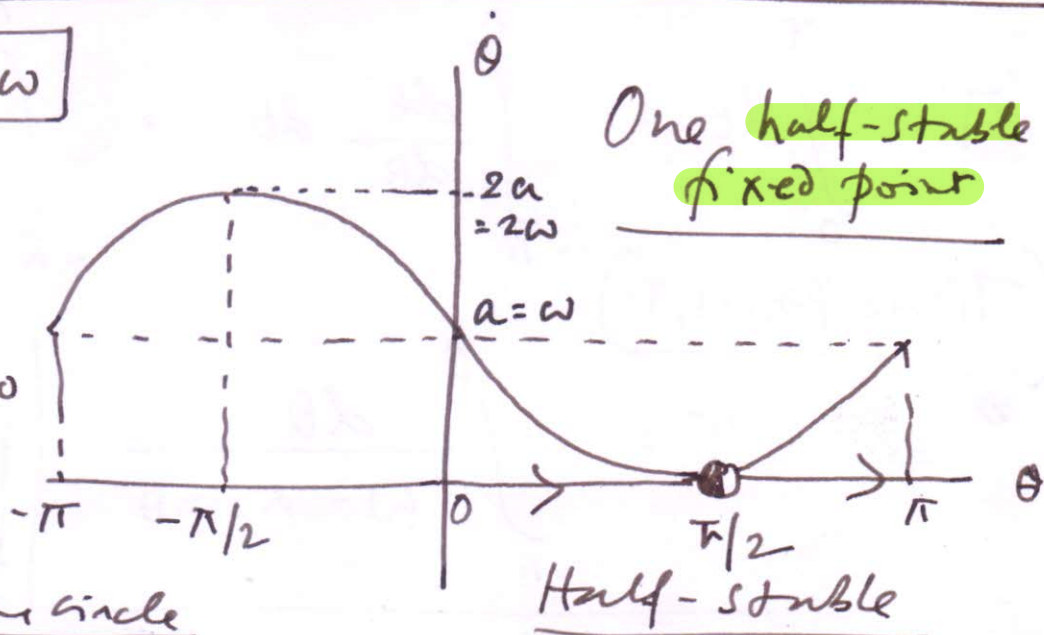 ω
θ̇
One half-stable
fixed point
2a
= 2ω
a = ω
0
-π
-π/2
0
π/2
π
θ
circle
Half-stable